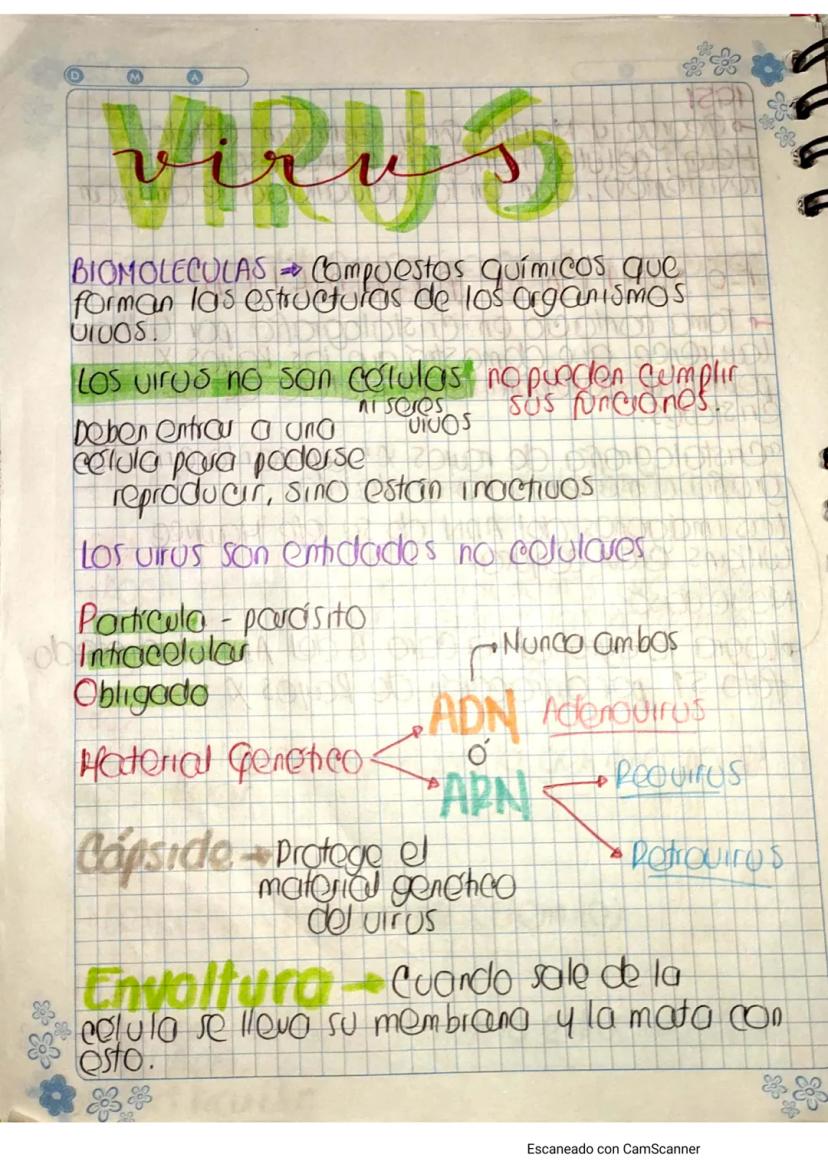 D M A
VIRUS
virus
BIOMOLECULAS → Compuestos químicos que
forman las estructuras de los organismos
vivos.
Los virus no son células no pueden cumplir
ni seres vivos sus funciones.
Deben entrar a una
célula para poderse
reproducir, sino están inactivos
Los virus son entidades no celulares
Partícula - parásito
Intracelular
Obligado
Nunca ambos
ADN Adenovirus
Material Genético ó
ARN Reovirus
Retrovirus
Cápside → Protege el
material genético
del virus
Envoltura → Cuando sale de la
célula se lleva su membrana y la mata con
esto.
Escaneado con CamScanner